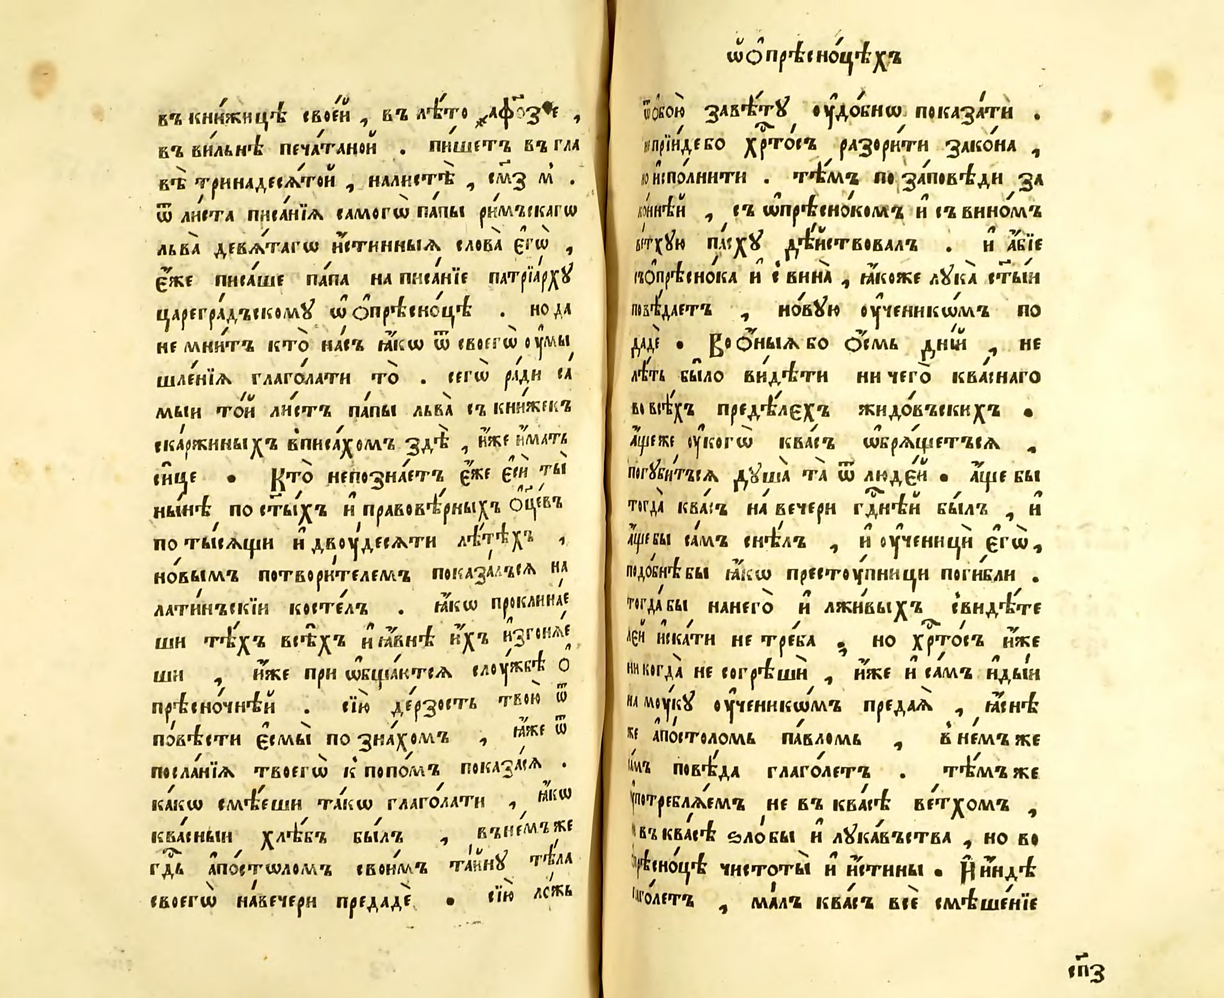 въ кни́жицѣ свое́й , въ лѣ́то ,
въ ви́льнѣ печа́таной . пи́шетъ въ гла
вѣ̀ трина́десѧтой , налистѣ̀ , см҃з м҃ .
ѿ ли́ста писа́нїѧ самогѡ̀ па́пы ри́мъскагѡ
льва̀ девѧ́тагѡ и҆́стинныѧ слова̀ є҆гѡ̀ ,
є҆́же писа́ше па́па на писа́нїе патрїа́рху
цареградъскому ѡ҆ ѻ҆прѣсно́цѣ . но да
не мни́тъ кто̀ на́съ ꙗ҆́кѡ ѿ своегѡ̀ оу҆мы
шле́нїѧ глаго́лати то̀ . сегѡ̀ ра́ди са́
мыи то́й ли́стъ па́пы льва̀ съ кни́жекъ
ска́ржиныхъ вписа́хомъ здѣ̀ , и҆́же и҆́мать
си́це . Кто̀ непозна́етъ є҆́же є҆сѝ ты̀
ны́нѣ по ст҃ы́хъ и҆ правовѣ́рныхъ ѻ҆ц҃е́въ
по ты́сѧщи и҆ двоу́десѧти лѣ́тѣхъ ,
но́вымъ потвори́телемъ показа́лъсѧ на
лати́нъскїи косте́лъ . ꙗ҆́кѡ проклина́е
ши тѣ́хъ всѣ́хъ и҆ ꙗ҆́внѣ и҆́хъ и҆згонѧ́е
ши , и҆́же при ѡ҆бща́ютсѧ слоу́жбѣ ѻ҆
прѣсно́чнѣй . сїю̀ де́рзость твою̀ ѿ
по́вѣсти є҆смы̀ по зна́хомъ , ꙗ҆́же ѿ
посла́нїѧ твоегѡ̀ к попо́мъ показа́сѧ .
ка́кѡ смѣ́еши та́кѡ глаго́лати , ꙗ҆́кѡ
ква́сныи хлѣ́бъ бы́лъ , въ не́мъ же
гд҇ь а҆по́стѡломъ свои́мъ та́йну тѣ́ла
своегѡ̀ на́вечери предадѐ . сїю̀ ло́жь
ѡ҆ ѻ҆прѣсно́цѣхъ
ѻ҆бою̀ завѣ́ту оу҆до́бнѡ показа́ти .
прїи́де бо хр҇то́съ разори́ти зако́на ,
и҆спо́лнити . тѣ́мъ по за́поведи за
ко́ннѣй , съ ѡ҆прѣсно́комъ и҆ съ вино́мъ
ве́тхую па́сху дѣ́йствовалъ . и҆ а҆́бїе
ѻ҆прѣсно́ка и҆ с вина̀ , ꙗ҆́коже лука̀ ст҃ы́й
повѣ́даетъ , но́вую оу҆ченикѡ́мъ по
дадѐ . Во ѻ҆́ныѧ бо ѻ҆́смь дні́й , не
лѣ́ть бы́ло ви́дѣти ни чего̀ ква́снаго
во всѣ́хъ предѣ́лєхъ жидо́въскихъ .
а҆́ще же оу҆ когѡ̀ ква́съ ѡ҆брѧ́щетъсѧ ,
погу́битъсѧ душа̀ та̀ ѿ люде́й . а҆́ще бы
тогда̀ ква́съ на́ вечери гд҇нѣй бы́лъ , и҆
а҆́ще бы са́мъ снѣ́лъ , и҆ оу҆ченицѝ є҆гѡ̀ ,
подо́бнѣ бы ꙗ҆́кѡ престоу́пници поги́бли .
тогда́ бы нанего̀ и҆ лжи́выхъ свидѣ́те
ле́й и҆ска́ти не тре́ба , но хр҇то́съ и҆́же
никогда̀ не согрѣшѝ , и҆́же и҆ са́мъ и҆ды́й
на моу́ку оу҆ченикѡ́мъ предаѧ̀ , ꙗ҆́снѣ
же а҆по́столомь па́вломь , в не́мъ же
повѣ́да глаго́летъ . тѣ́мъ же
употреблѧ́емъ не в ква́сѣ ве́тхомъ ,
в ква́сѣ ѕло́бы и҆ лука́въства , но во
чистоты̀ и҆ и҆́стины . И҆ и҆́ндѣ
глаго́летъ , ма́лъ ква́съ всѐ смѣше́нїе
сп҃з